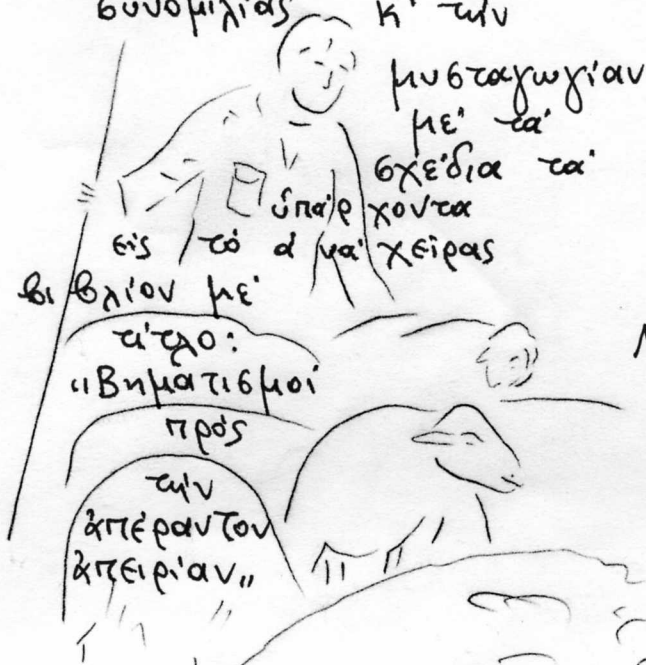 συνομιλίας κ' τὴν
μυσταγωγίαν
μὲ τὰ
σχέδια τὰ
ὑπάρχοντα
εἰς τὸ ἀνὰ χεῖρας
βιβλίον μὲ
τίτλο:
„Βηματισμοὶ
πρὸς
τὴν
ἀπέραντον
ἀπειρίαν„